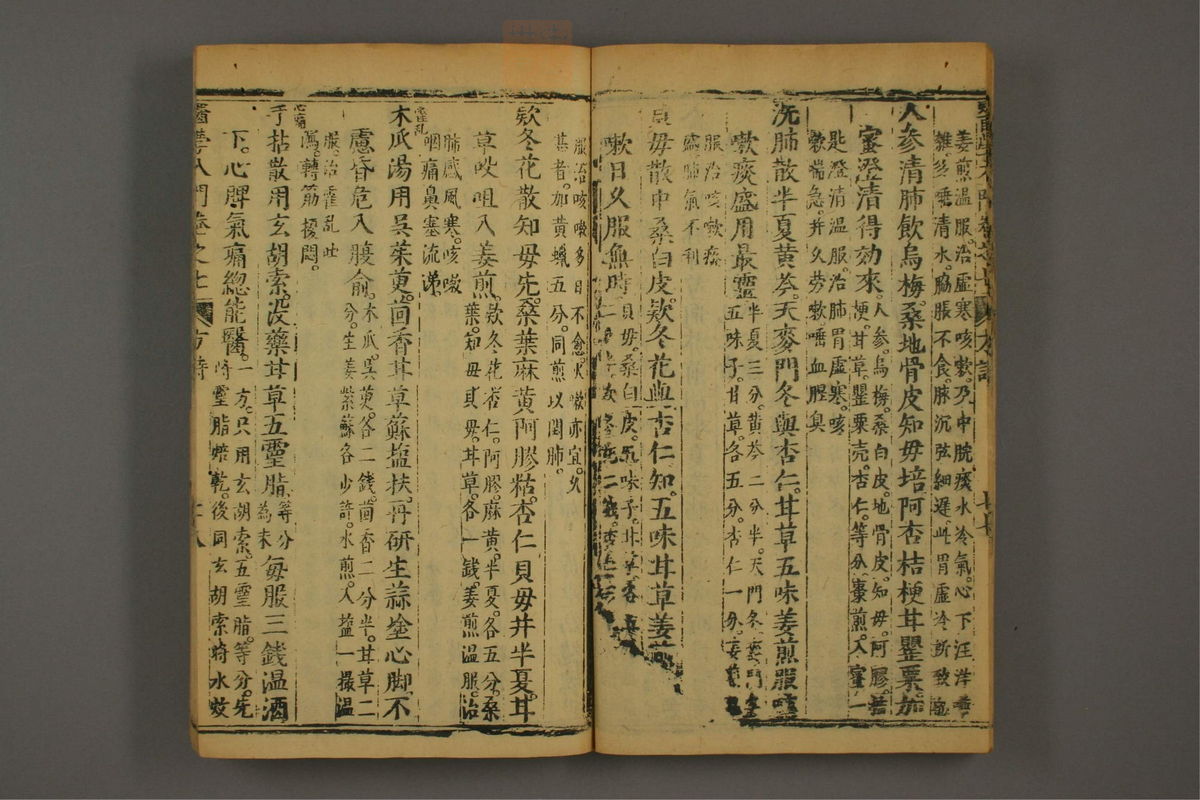 姜煎温服。治虛寒咳嗽。乃中脘痰水冷氣。心下汪洋
雜多唾清水。脇脹不食。脉沉弦細遲。此胃虛冷所致
人参清肺飲烏梅。桑地骨皮知母培阿杏桔梗甘罌粟加
蜜澄清得効來。
人参。烏梅。桑白皮。地骨皮。知母。阿膠。
梗。甘草。罌粟壳。杏仁。等分。棗煎。入蜜一
匙澄清温服。治肺胃虛寒。咳
嗽喘急。并久劳嗽。唾血腥臭
洗肺散半夏黃芩。天麥門冬與杏仁。甘草五味姜煎服咳
嗽痰盛用最靈
半夏三分。黃芩二分半。天門冬麥門
五味子。甘草。各五分。杏仁一分。姜
服治咳嗽痰
盛肺氣不利
貝母散中桑白皮。欵冬花與杏仁知。五味甘草姜
嗽日久服無時
貝母。桑白皮。五味子。甘草。各
服治咳嗽多日不愈。火嗽亦宜。久
甚者。加黃蠟五分。同煎以閏肺。
欵冬花散知母先。桑葉麻黃阿膠粘。杏仁貝母并半夏。甘
草㕮咀入姜煎。
欵冬花。杏仁。阿膠。麻黃。半夏。各五分。桑
葉。知母。貝母。甘草。各一錢。姜煎温服。治
肺感風寒。咳嗽
咽痛鼻塞流涕
霍乱
木瓜湯用吳茱萸。茴香甘草蘇塩扶。再研生蒜塗心脚。不
慮昏危入腹俞。
木瓜。吳萸。各二錢。茴香二分半。甘草二
分。生姜紫蘇各少許。水煎。入塩一撮温
服。治霍乱吐
瀉。轉筋擾悶。
心痛
手拈散用玄胡索。没藥甘草五靈脂。
等分
為末
每服三錢温酒
下。心脾氣痛緫能醫。
一方。只用玄胡索。五靈脂。等分。先
靈脂焙乾。後同玄胡索將水
醫學入門卷之七
方詩